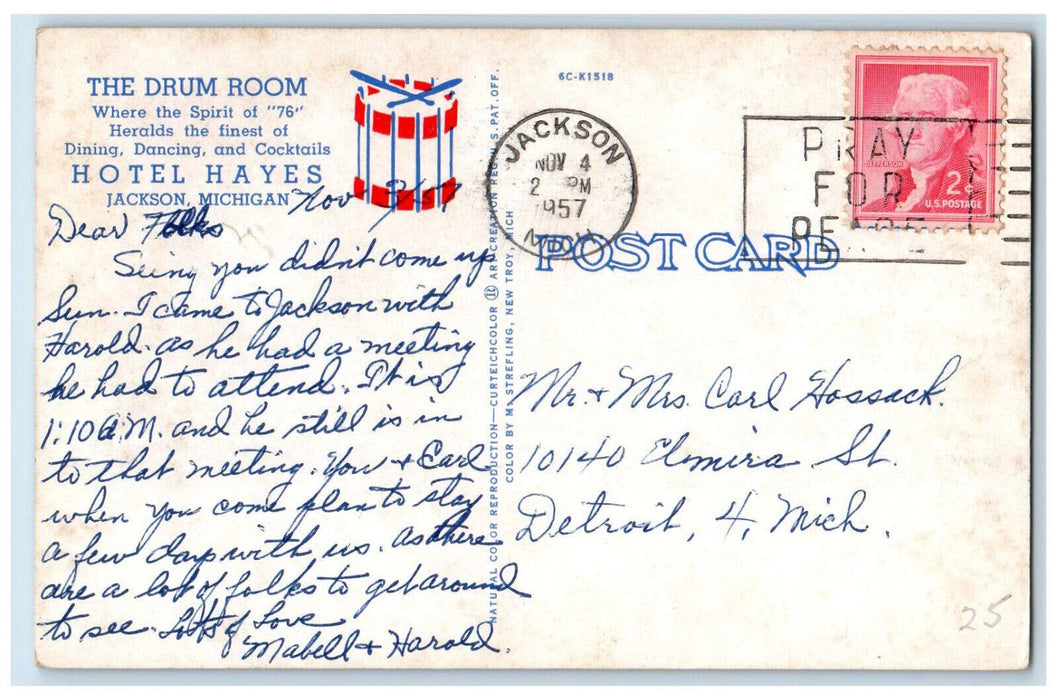 THE DRUM ROOM
Where the Spirit of "76"
Heralds the finest of
Dining, Dancing, and Cocktails
HOTEL HAYES
JACKSON, MICHIGAN
Nov 3/57
Dear Folks
Seing you didn't come up
Sun. I came to Jackson with
Harold. as he had a meeting
he had to attend. It is
1:10 A.M. and he still is in
to that meeting. You + Carl
when you come plan to stay
a few days with us. As there
are a lot of folks to get around
to see. Lotts of Love
Mabell + Harold.
NATURAL COLOR REPRODUCTION—CURTEICHCOLOR ART-CREATION REG. U.S. PAT. OFF.
COLOR BY M. STREFLING, NEW TROY, MICH
6C-K1518
JACKSON
NOV 4
2 PM
1957
MICH
PRAY
FOR
PEACE
JEFFERSON
2¢
U.S. POSTAGE
POST CARD
Mr. + Mrs. Carl Hossack.
10140 Elmira St.
Detroit, 4, Mich.
25